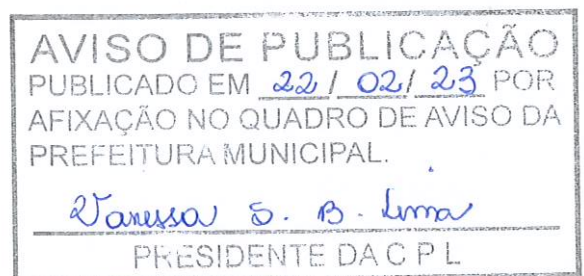 AVISO DE PUBLICAÇÃO
PUBLICADO EM 22 / 02 / 23 POR
AFIXAÇÃO NO QUADRO DE AVISO DA
PREFEITURA MUNICIPAL.
Vanessa S. B. Lima
PRESIDENTE DA C P L